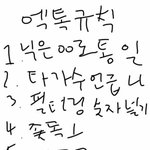 엑톡규칙
1. 닉은 00로 통일
2. 타가수 언급 ㄴ
3. 필터링 숫자넣기
4. 줒독ㅗ